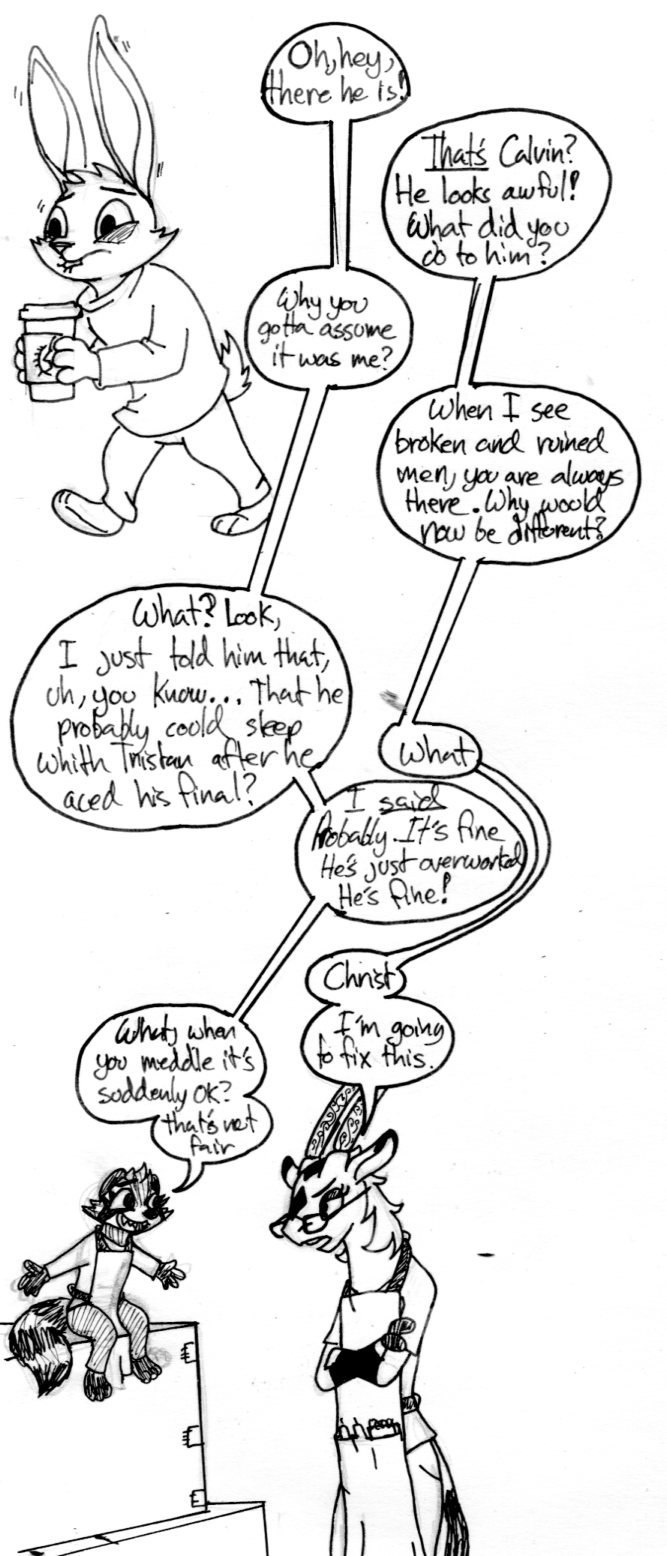 Oh, hey,
there he is!
That's Calvin?
He looks awful!
What did you
do to him?
Why you
gotta assume
it was me?
When I see
broken and ruined
men, you are always
there. Why would
now be different?
What? Look,
I just told him that,
uh, you know... That he
probably could sleep
whith Tristan after he
aced his final?
What
I said
Probably. It's fine
He's just overworked
He's fine!
Christ
I'm going
to fix this.
What, when
you meddle it's
suddenly OK?
that's not
fair